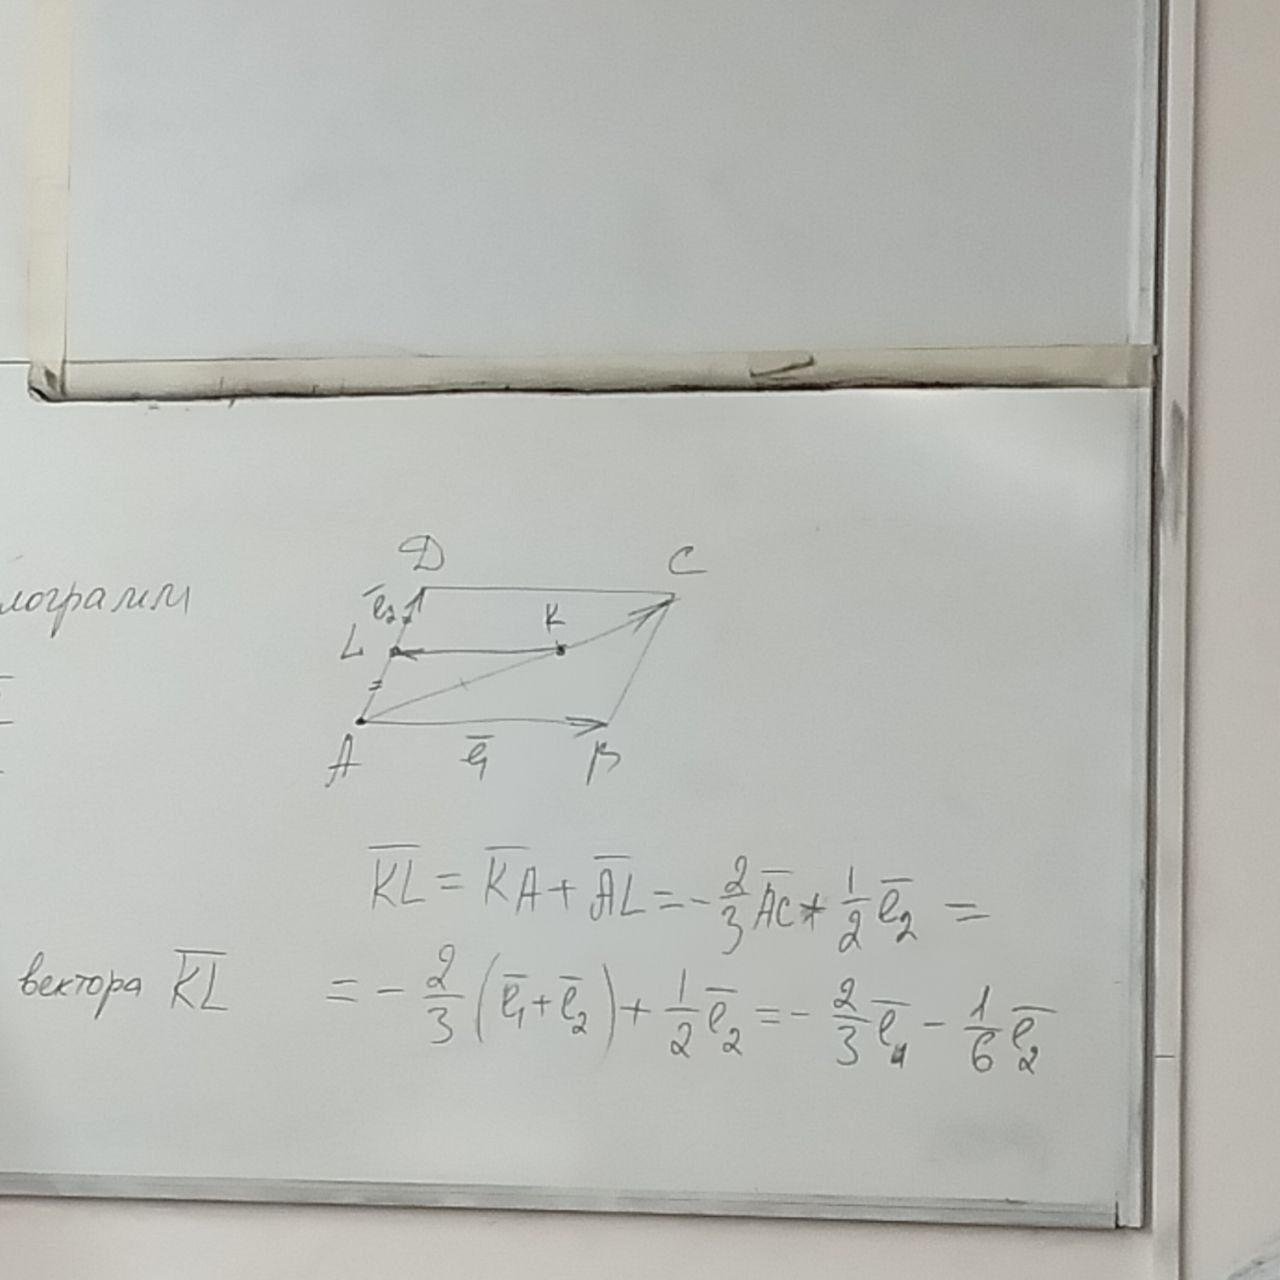 D C
лограмм
e̅₂ K
L
A e̅₁ B
K̅L̅ = K̅A̅ + A̅L̅ = -2/3 A̅C̅ + 1/2 e̅₂ =
вектора K̅L̅ = -2/3 (e̅₁ + e̅₂) + 1/2 e̅₂ = -2/3 e̅₁ - 1/6 e̅₂